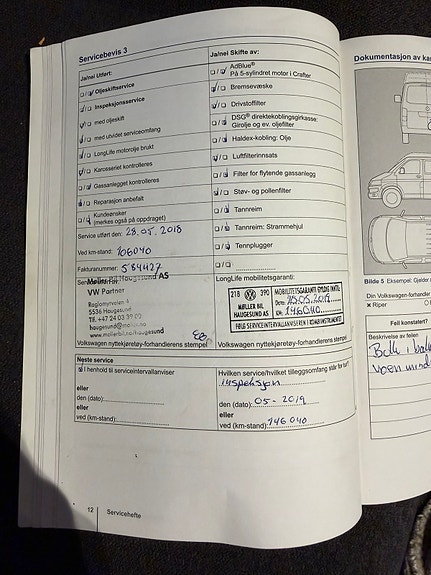 Servicebevis 3
Ja/nei Utført:
Oljeskiftservice
Inspeksjonsservice
med oljeskift
med utvidet serviceomfang
LongLife motorolje brukt
Karosseriet kontrolleres
Gassanlegget kontrolleres
Reparasjon anbefalt
Kundeønsker
(merkes også på oppdraget)
Service utført den: 28.05.2018
Ved km-stand: 106040
Fakturanummer: 584427
Møller Bil Haugesund AS
VW Partner
Raglamyrveien
5536 Haugesund
Tlf. +47 24 03
haugesund@moller.no
www.mollerbil.no/haugesund
Volkswagen nyttekjøretøy-forhandlerens stempel
Ja/nei Skifte av:
AdBlue®
På 5-sylindret motor i Crafter
Bremsevæske
Drivstoffilter
DSG® direktekoblingsgirkasse:
Girolje og ev. oljefilter
Haldex-kobling: Olje
Luftfilterinnsats
Filter for flytende gassanlegg
Støv- og pollenfilter
Tannreim
Tannreim: Strammehjul
Tennplugger
LongLife mobilitetsgaranti:
218 390 MOBILITETSGARANTI GYLDIG INNTIL:
MØLLER BIL
HAUGESUND AS
Dato:
KM: 146040
FØLG SERVICEINTERVALLANVISEREN I KOMBIINSTRUMENTET
Volkswagen nyttekjøretøy-forhandlerens stempel
Neste service
I henhold til serviceintervallanviser
eller
den (dato):
eller
ved (km-stand):
Hvilken service/hvilket tilleggsomfang står for tur?
inspeksjon
den (dato): 05-2019
eller
ved (km-stand): 146040
12 Servicehefte
Dokumentasjon av ka
Bilde 5 Eksempel: Gjelder
Din Volkswagen-forhandler
Riper
Feil konstatert?
Beskrivelse av feilen